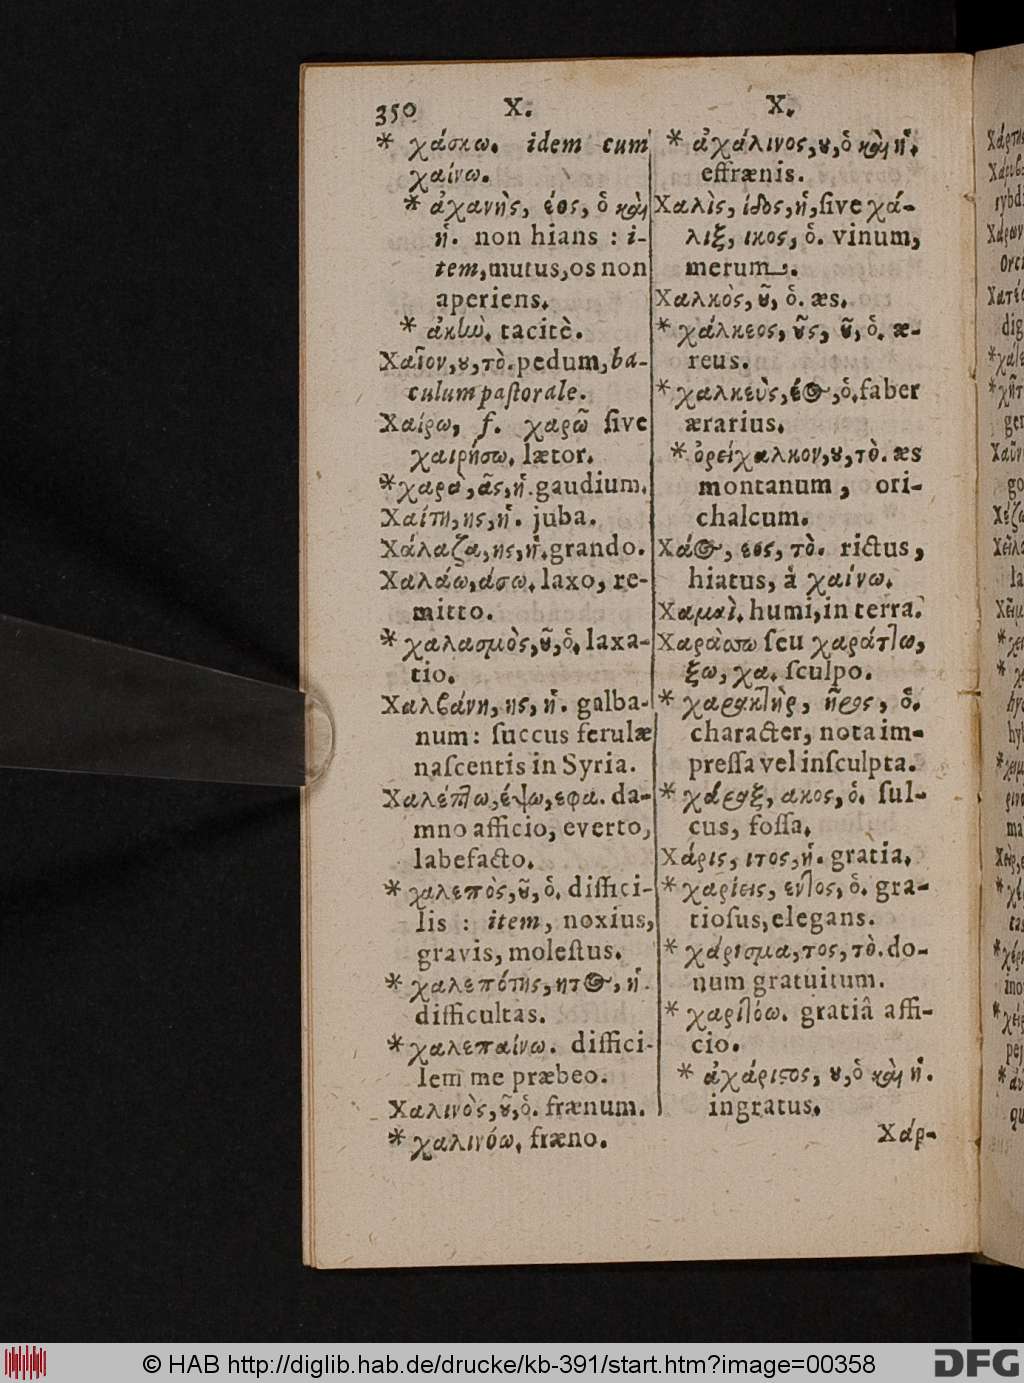 350 X. X.
* χάσκω. idem cum
χαίνω.
* ἀχανὴς, έος, ὁ καὶ
ἡ. non hians : i-
tem, mutus, os non
aperiens.
* ἀκὴν. tacitè.
Χαῖον, ου, τὸ. pedum, ba-
culum paſtorale.
Χαίρω, f. χαρῶ ſive
χαιρήσω. lætor.
* χαρὰ, ᾶς, ἡ. gaudium.
Χαίτη, ης, ἡ. juba.
Χάλαζα, ης, ἡ. grando.
Χαλάω, άσω. laxo, re-
mitto.
* χαλασμὸς, οῦ, ὁ. laxa-
tio.
Χαλβάνη, ης, ἡ. galba-
num: ſuccus ferulæ
naſcentis in Syria.
Χαλέπτω, έψω, εφα. da-
mno afficio, everto,
labefacto.
* χαλεπὸς, οῦ, ὁ. diffici-
lis : item, noxius,
gravis, moleſtus.
* χαλεπότης, ητος, ἡ.
difficultas.
* χαλεπαίνω. diffici-
lem me præbeo.
Χαλινὸς, οῦ, ὁ. frænum.
* χαλινόω. fræno.
* ἀχάλινος, ου, ὁ καὶ ἡ.
effrænis.
Χαλὶς, ίδος, ἡ, ſive χά-
λιξ, ικος, ὁ. vinum,
merum.
Χαλκὸς, οῦ, ὁ. æs.
* χάλκεος, οῦς, οῦ, ὁ. æ-
reus.
* χαλκεὺς, έος, ὁ. faber
ærarius.
* ὀρείχαλκον, ου, τὸ. æs
montanum, ori-
chalcum.
Χάος, εος, τὸ. rictus,
hiatus, à χαίνω.
Χαμαὶ. humi, in terra.
Χαράσσω ſeu χαράττω,
ξω, χα. ſculpo.
* χαρακτὴρ, ῆρος, ὁ.
character, nota im-
preſſa vel inſculpta.
* χάραξ, ακος, ὁ. ſul-
cus, foſſa.
Χάρις, ιτος, ἡ. gratia.
* χαρίεις, εντος, ὁ. gra-
tioſus, elegans.
* χάρισμα, τος, τὸ. do-
num gratuitum.
* χαριτόω. gratiâ affi-
cio.
* ἀχάριστος, ου, ὁ καὶ ἡ.
ingratus.
Χάρ-
© HAB http://diglib.hab.de/drucke/kb-391/start.htm?image=00358
DFG